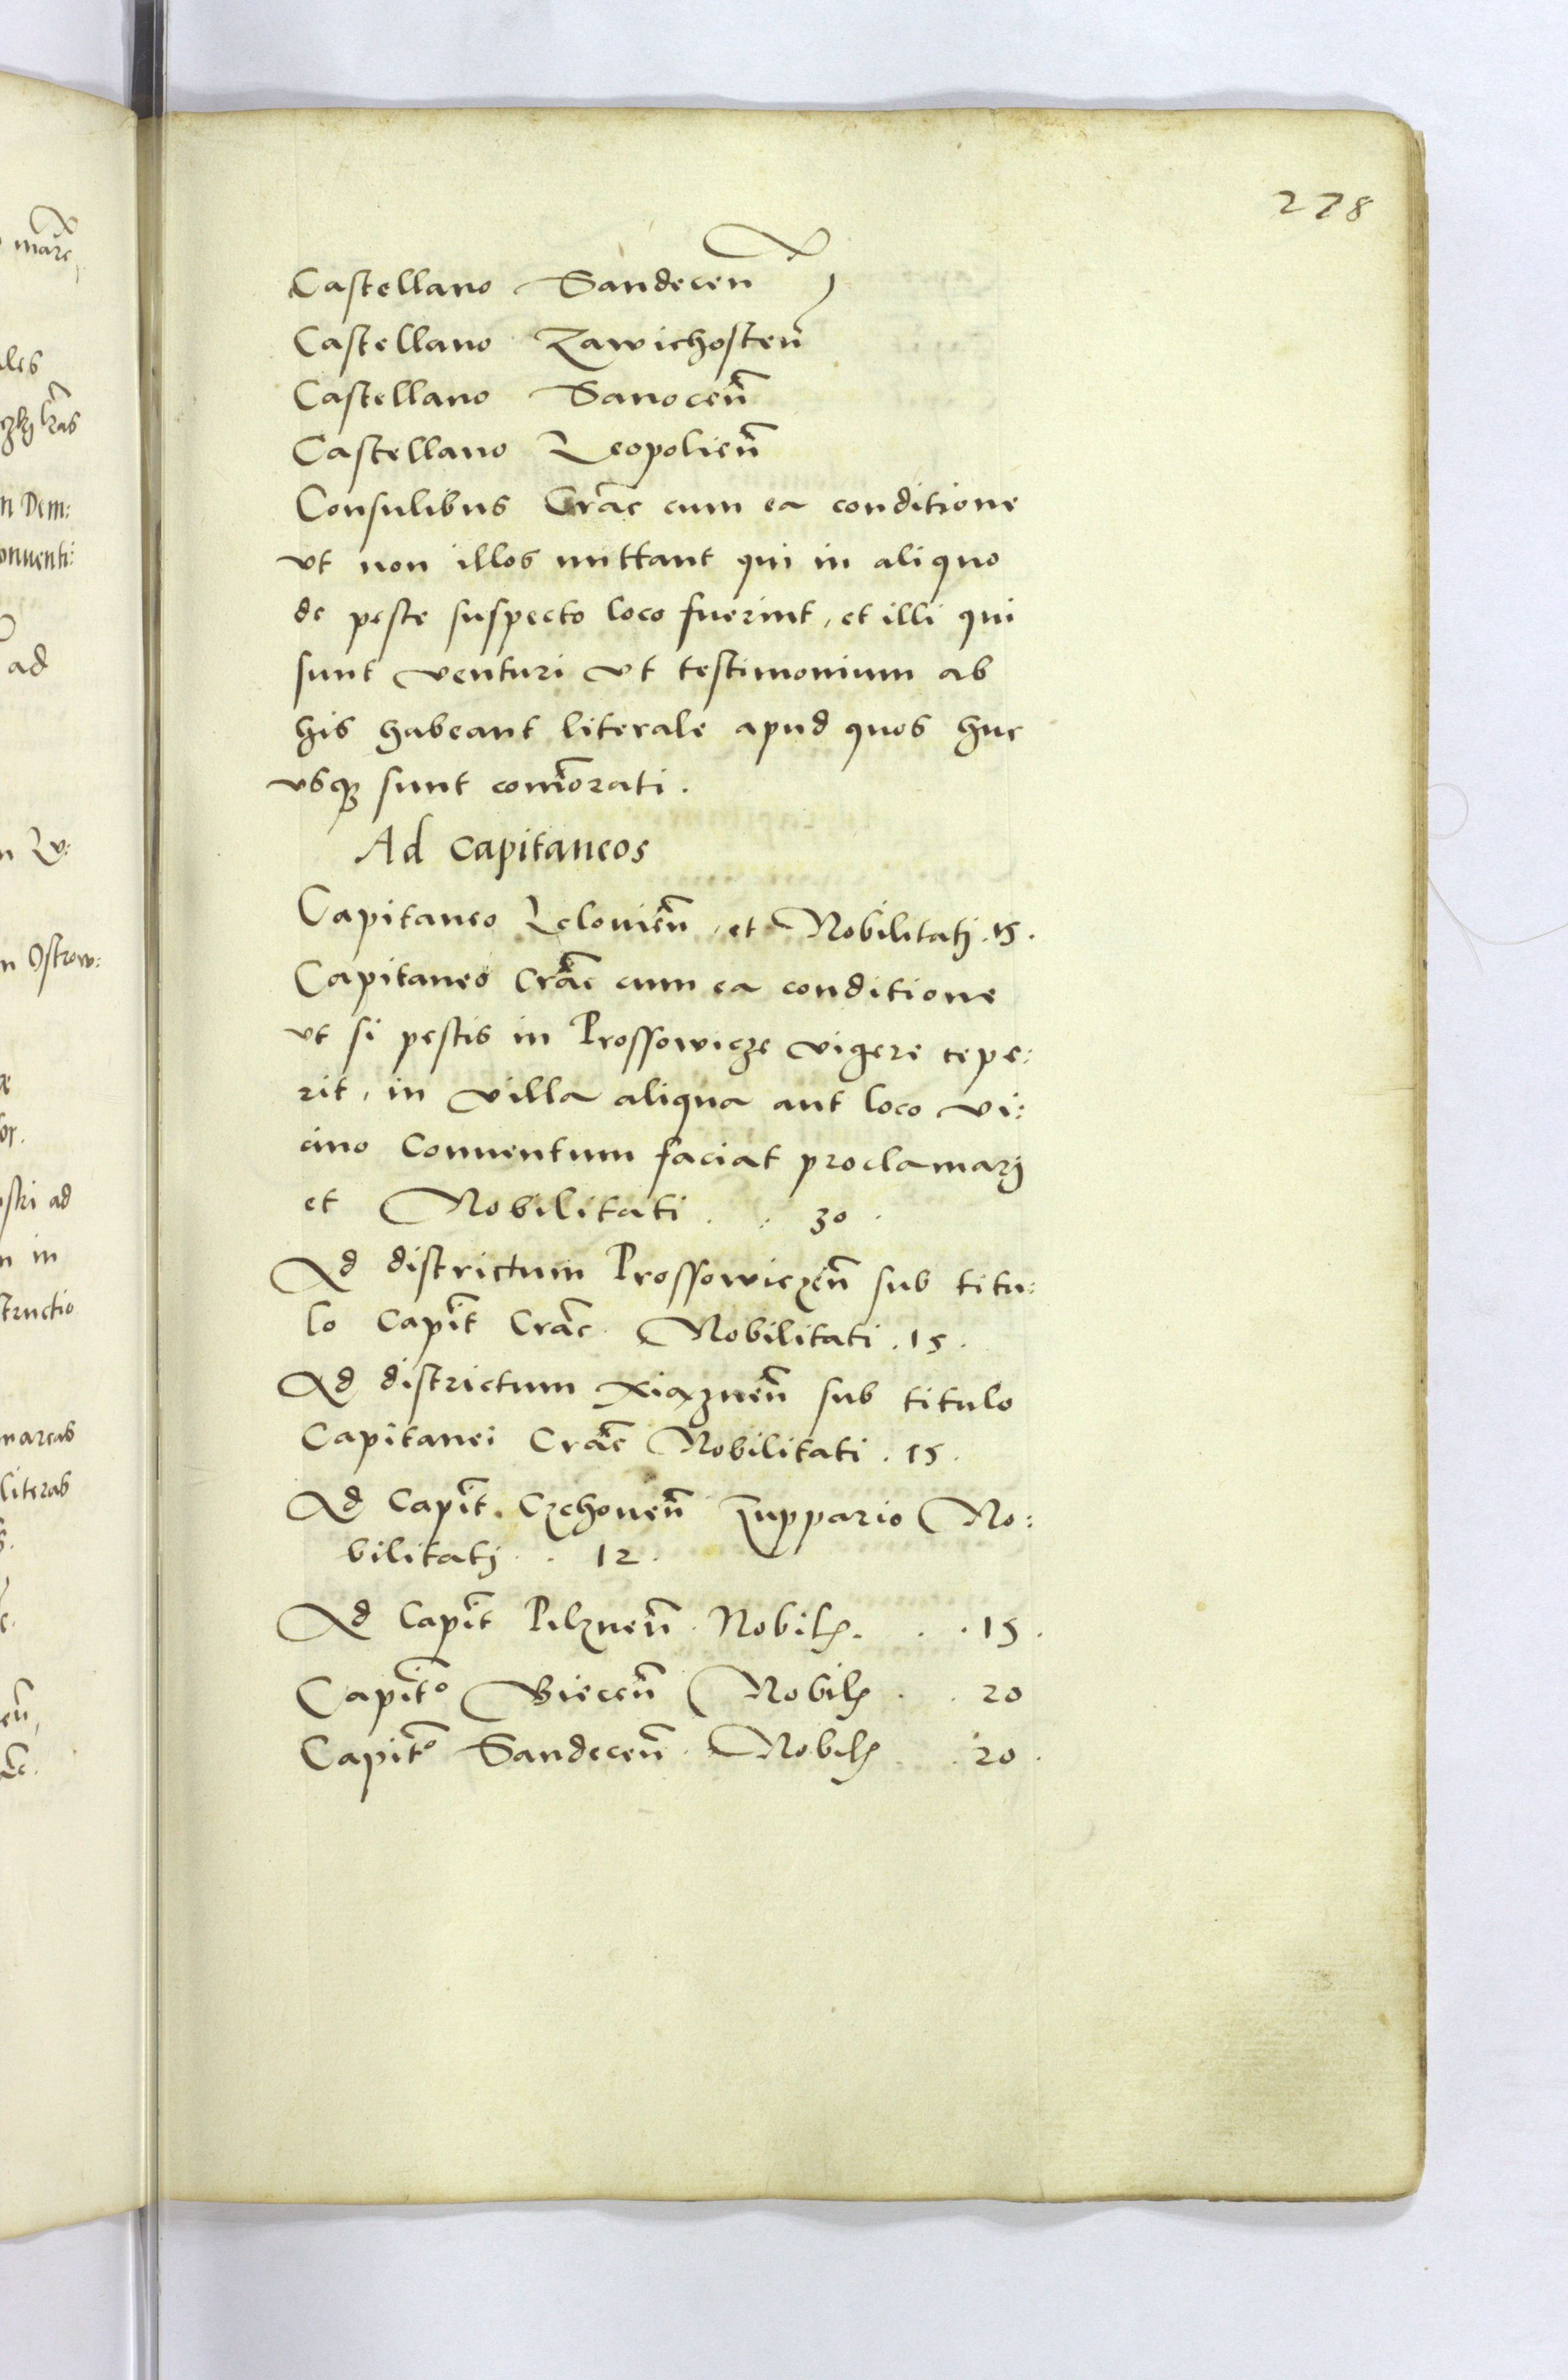 228
Castellano Sandecen̄
Castellano Zawichosten̄
Castellano Sanocen̄
Castellano Leopolien̄
Consulibus Crac̄ cum ea conditione
vt non illos mittant qui in aliquo
de peste suspecto loco fuerint, et illi qui
sunt venturi vt testimonium ab
his habeant literale apud quos huc
vsqꝫ sunt com̄orati.
Ad capitaneos
Capitaneo Lelouien̄, et Nobilitatj .15.
Capitaneo Crac̄ cum ea conditione
vt si pestis in Prossowicze vigere cepe:
rit, in villa aliqua aut loco vi:
cino Conuentum faciat proclamarj
et Nobilitati . . 30 .
Ad districtum Prossowiczen̄ sub titu:
lo Capit̄ Crac̄. Nobilitati . 15 .
Ad districtum Xiąznen̄ sub titulo
Capitanei Crac̄ Nobilitati . 15 .
Ad Capit̄. Czchouen̄ Zuppario No:
bilitatj . . 12 .
Ad Capit̄ Pilznen̄ . Nobilꝭ . . . 15 .
Capit̄o Biecen̄ Nobilꝭ . . 20
Capit̄o Sandecen̄ . Nobilꝭ . . 20 .